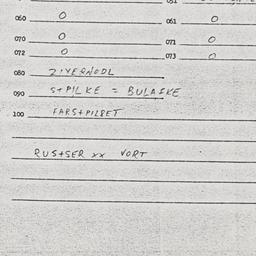 060 0 061 0
070 0 071 0
072 0 073 0
080
090 STPILKE = BULASKE
100 FARSTPILSET
RUSTSER XX VORT